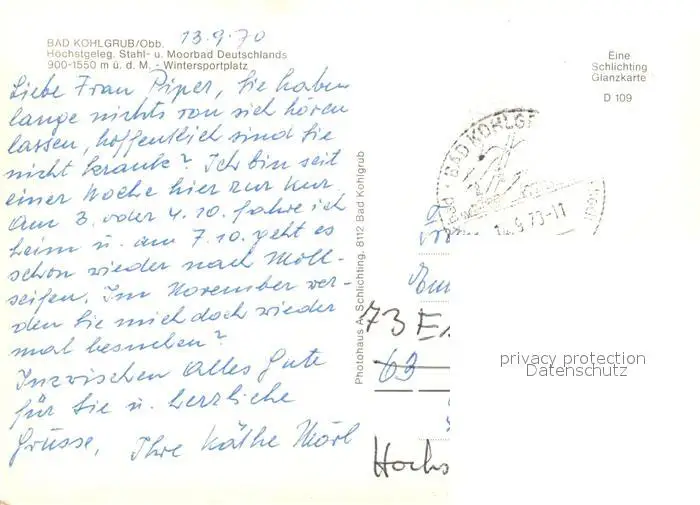 BAD KOHLGRUB/Obb.
13.9.70
Höchstgeleg. Stahl- u. Moorbad Deutschlands
900-1550 m ü. d. M. - Wintersportplatz
Liebe Frau Piper, Sie haben
lange nichts von sich hören
lassen, hoffentlich sind Sie
nicht krank? Ich bin seit
einer Woche hier zur Kur.
Am 3. oder 4.10. fahre ich
heim u. am 7.10. geht es
schon wieder nach Moll-
seifen. Im November wer-
den Sie mich doch wieder
mal besuchen?
Inzwischen alles Gute
für Sie u. herzliche
Grüsse, Ihre Käthe Mörl
Photohaus A. Schlichting, 8112 Bad Kohlgrub
Eine
Schlichting
Glanzkarte
D 109
BAD KOHLGR
9.70-11
73 E
63
Hochs
privacy protection
Datenschutz